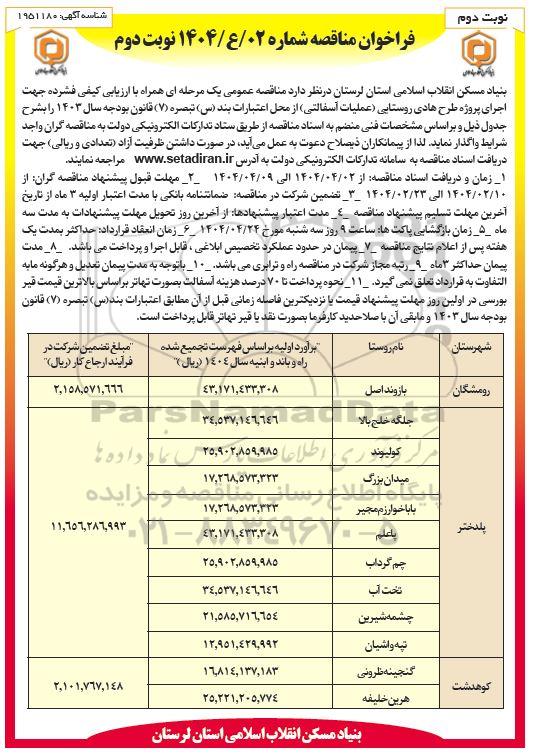 نوبت دوم
شناسه آگهی: ۱۹۵۱۱۸۰
فراخوان مناقصه شماره ۰۲/ع/۱۴۰۴ نوبت دوم
بنیاد مسکن انقلاب اسلامی استان لرستان درنظر دارد مناقصه عمومی یک مرحله ای همراه با ارزیابی کیفی فشرده جهت
اجرای پروژه طرح هادی روستایی (عملیات آسفالتی) از محل اعتبارات بند (س) تبصره (۷) قانون بودجه سال ۱۴۰۳ را بشرح
جدول ذیل و براساس مشخصات فنی منضم به اسناد مناقصه از طریق ستاد تدارکات الکترونیکی دولت به مناقصه گران واجد
شرایط واگذار نماید. لذا از پیمانکاران ذیصلاح دعوت به عمل می‌آید، در صورت داشتن ظرفیت آزاد (تعدادی و ریالی) جهت
دریافت اسناد مناقصه به سامانه تدارکات الکترونیکی دولت به آدرس www.setadiran.ir مراجعه نمایند.
۱_ زمان و دریافت اسناد مناقصه: از ۱۴۰۴/۰۴/۰۲ الی ۱۴۰۴/۰۴/۰۹ _۲_ مهلت قبول پیشنهاد مناقصه گران: از
۱۴۰۴/۰۲/۱۰ الی ۱۴۰۴/۰۲/۲۳ _۳_ تضمین شرکت در مناقصه: ضمانتنامه بانکی با مدت اعتبار اولیه ۳ ماه از تاریخ
آخرین مهلت تسلیم پیشنهاد مناقصه _۴_ مدت اعتبار پیشنهادها: از آخرین روز تحویل مهلت پیشنهادات به مدت سه
ماه _۵_ زمان بازگشایی پاکت ها: ساعت ۹ روز سه شنبه مورخ ۱۴۰۴/۰۴/۲۴ _۶_ زمان انعقاد قرارداد: حداکثر بمدت یک
هفته پس از اعلام نتایج مناقصه _۷_ پیمان در حدود عملکرد تخصیص ابلاغی ، قابل اجرا و پرداخت می باشد. _۸_ مدت
پیمان حداکثر ۳ ماه _۹_ رتبه مجاز شرکت در مناقصه راه و ترابری می باشد. _۱۰_ باتوجه به مدت پیمان تعدیل و هرگونه مابه
التفاوت به قرارداد تعلق نمی گیرد. _۱۱_ نحوه پرداخت تا ۷۰ درصد هزینه آسفالت بصورت تهاتر براساس بالاترین قیمت قیر
بورسی در اولین روز مهلت پیشنهاد قیمت یا نزدیکترین فاصله زمانی قبل از آن مطابق اعتبارات بند(س) تبصره (۷) قانون
بودجه سال ۱۴۰۳ و مابقی آن با صلاحدید کارفرما بصورت نقد یا قیر تهاتر قابل پرداخت است.
شهرستان نام روستا "برآورد اولیه بر اساس فهرست تجمیع شده راه و باند و ابنیه سال ۱۴۰۴ (ریال)" "مبلغ تضمین شرکت در فرآیند ارجاع کار (ریال)"
رومشگان بازوند اصل ۴۳,۱۷۱,۴۳۳,۳۰۸ ۲,۱۵۸,۵۷۱,۶۶۶
پلدختر جلگه خلج بالا ۳۴,۵۳۷,۱۴۶,۶۴۶ ۱۱,۶۵۶,۲۸۶,۹۹۳
کولیوند ۲۵,۹۰۲,۸۵۹,۹۸۵
میدان بزرگ ۱۷,۲۶۸,۵۷۳,۳۲۳
باباخوارزم مجیر ۱۷,۲۶۸,۵۷۳,۳۲۳
پاعلم ۴۳,۱۷۱,۴۳۳,۳۰۸
چم گرداب ۲۵,۹۰۲,۸۵۹,۹۸۵
تخت آب ۳۴,۵۳۷,۱۴۶,۶۴۶
چشمه شیرین ۲۱,۵۸۵,۷۱۶,۶۵۴
تپه واشیان ۱۲,۹۵۱,۴۲۹,۹۹۲
کوهدشت گنجینه ظرونی ۱۶,۸۱۴,۱۳۷,۱۸۳ ۲,۱۰۱,۷۶۷,۱۴۸
هرین خلیفه ۲۵,۲۲۱,۲۰۵,۷۷۴
ParsNamadData
مرکز فرآوری اطلاعات پارس نماد داده ها
پایگاه اطلاع رسانی مناقصه و مزایده
۰۲۱-۸۸۳۴۹۶۷۰-۵
بنیاد مسکن انقلاب اسلامی استان لرستان